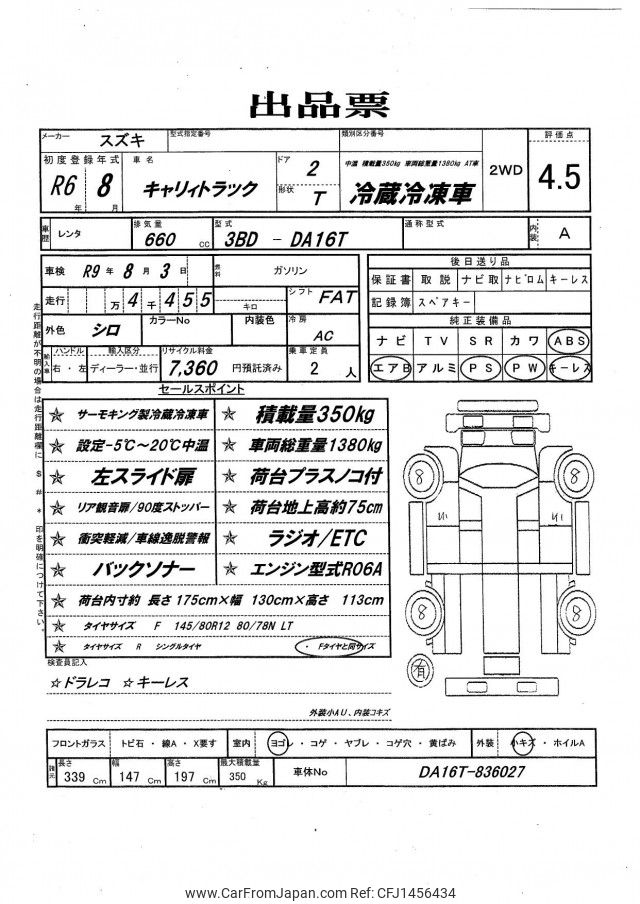 出品票
メーカー スズキ 型式指定番号 類別区分番号 2WD 評価点 4.5
初度登録年式 R6年 8月 車名 キャリィトラック ドア 2 形状 T 中温 積載量350kg 車両総重量1380kg AT車 冷蔵冷凍車
車歴 レンタ 排気量 660 cc 型式 3BD - DA16T 通称型式 内装 A
車検 R9 年 8 月 3 日 燃料 ガソリン
走行 万 4 千 4 5 5 キロ シフト FAT
外色 シロ カラーNo 内装色 冷房 AC
輸入車 ハンドル 右・左 輸入区分 ディーラー・並行 リサイクル料金 7,360 円預託済み 乗車定員 2 人
後日送り品
保証書 取説 ナビ取 ナビロム キーレス
記録簿 スペアキー
純正装備品
ナビ TV SR カワ ABS
エアB アルミ PS PW キーレス
セールスポイント
サーモキング製冷蔵冷凍車 積載量350kg
設定-5℃~20℃中温 車両総重量1380kg
左スライド扉 荷台プラスノコ付
リア観音扉/90度ストッパー 荷台地上高約75cm
衝突軽減/車線逸脱警報 ラジオ/ETC
バックソナー エンジン型式R06A
荷台内寸約 長さ 175cm×幅 130cm×高さ 113cm
タイヤサイズ F 145/80R12 80/78N LT
タイヤサイズ R シングルタイヤ ・ Fタイヤと同サイズ
走行距離が不明の場合は走行距離欄に $ # * 印を明確につけて下さい。
8 8
8 8
有
検査員記入
☆ドラレコ ☆キーレス
外装小AU、内装コキズ
フロントガラス トビ石 ・ 線A ・ X要す 室内 ヨゴレ ・ コゲ ・ ヤブレ ・ コゲ穴 ・ 黄ばみ 外装 小キズ ・ ホイルA
諸元 長さ 339 Cm 幅 147 Cm 高さ 197 Cm 最大積載量 350 Kg 車体No DA16T-836027
www.CarFromJapan.com Ref: CFJ1456434